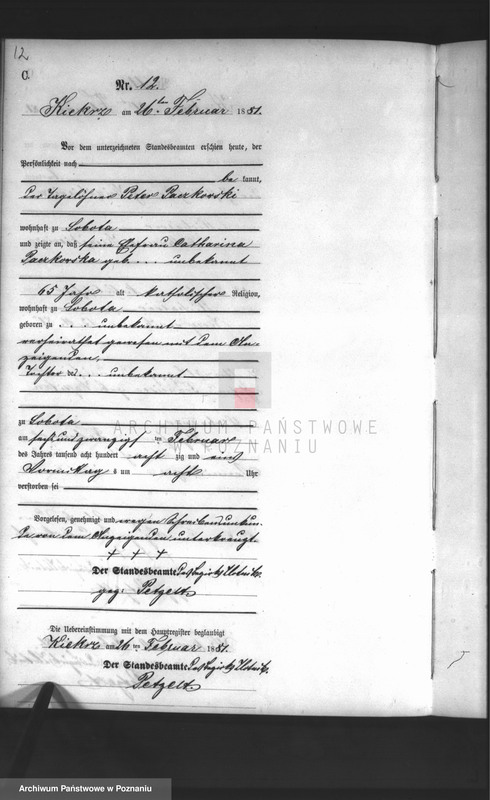 12
C.
Nr. 12.
Kiekrz am 26ten Februar 1881.
Vor dem unterzeichneten Standesbeamten erschien heute, der
Persönlichkeit nach
be kannt,
der Tagelöhner Peter Paczkowski
wohnhaft zu Sobota
und zeigte an, daß seine Ehefrau Catharina
Paczkowska geb. . . . unbekannt
65 Jahr alt katholischer Religion,
wohnhaft zu Sobota
geboren zu . . . unbekannt
verheirathet gewesen mit dem An-
zeigenden,
Tochter des . . . unbekannt
zu Sobota
am sechsundzwanzigsten Februar
des Jahres tausend acht hundert acht zig und eins
Vormittags um acht Uhr
verstorben sei
Vorgelesen, genehmigt und wegen Schreibensunkun-
de von dem Anzeigenden unterkreuzt
+ + +
Der Standesbeamte des Bezirks
gez. Petzelt.
Die Uebereinstimmung mit dem Hauptregister beglaubigt
Kiekrz am 26ten Februar 1881.
Der Standesbeamte des Bezirks
Petzelt.
ARCHIWUM PAŃSTWOWE
W POZNANIU
Archiwum Państwowe w Poznaniu